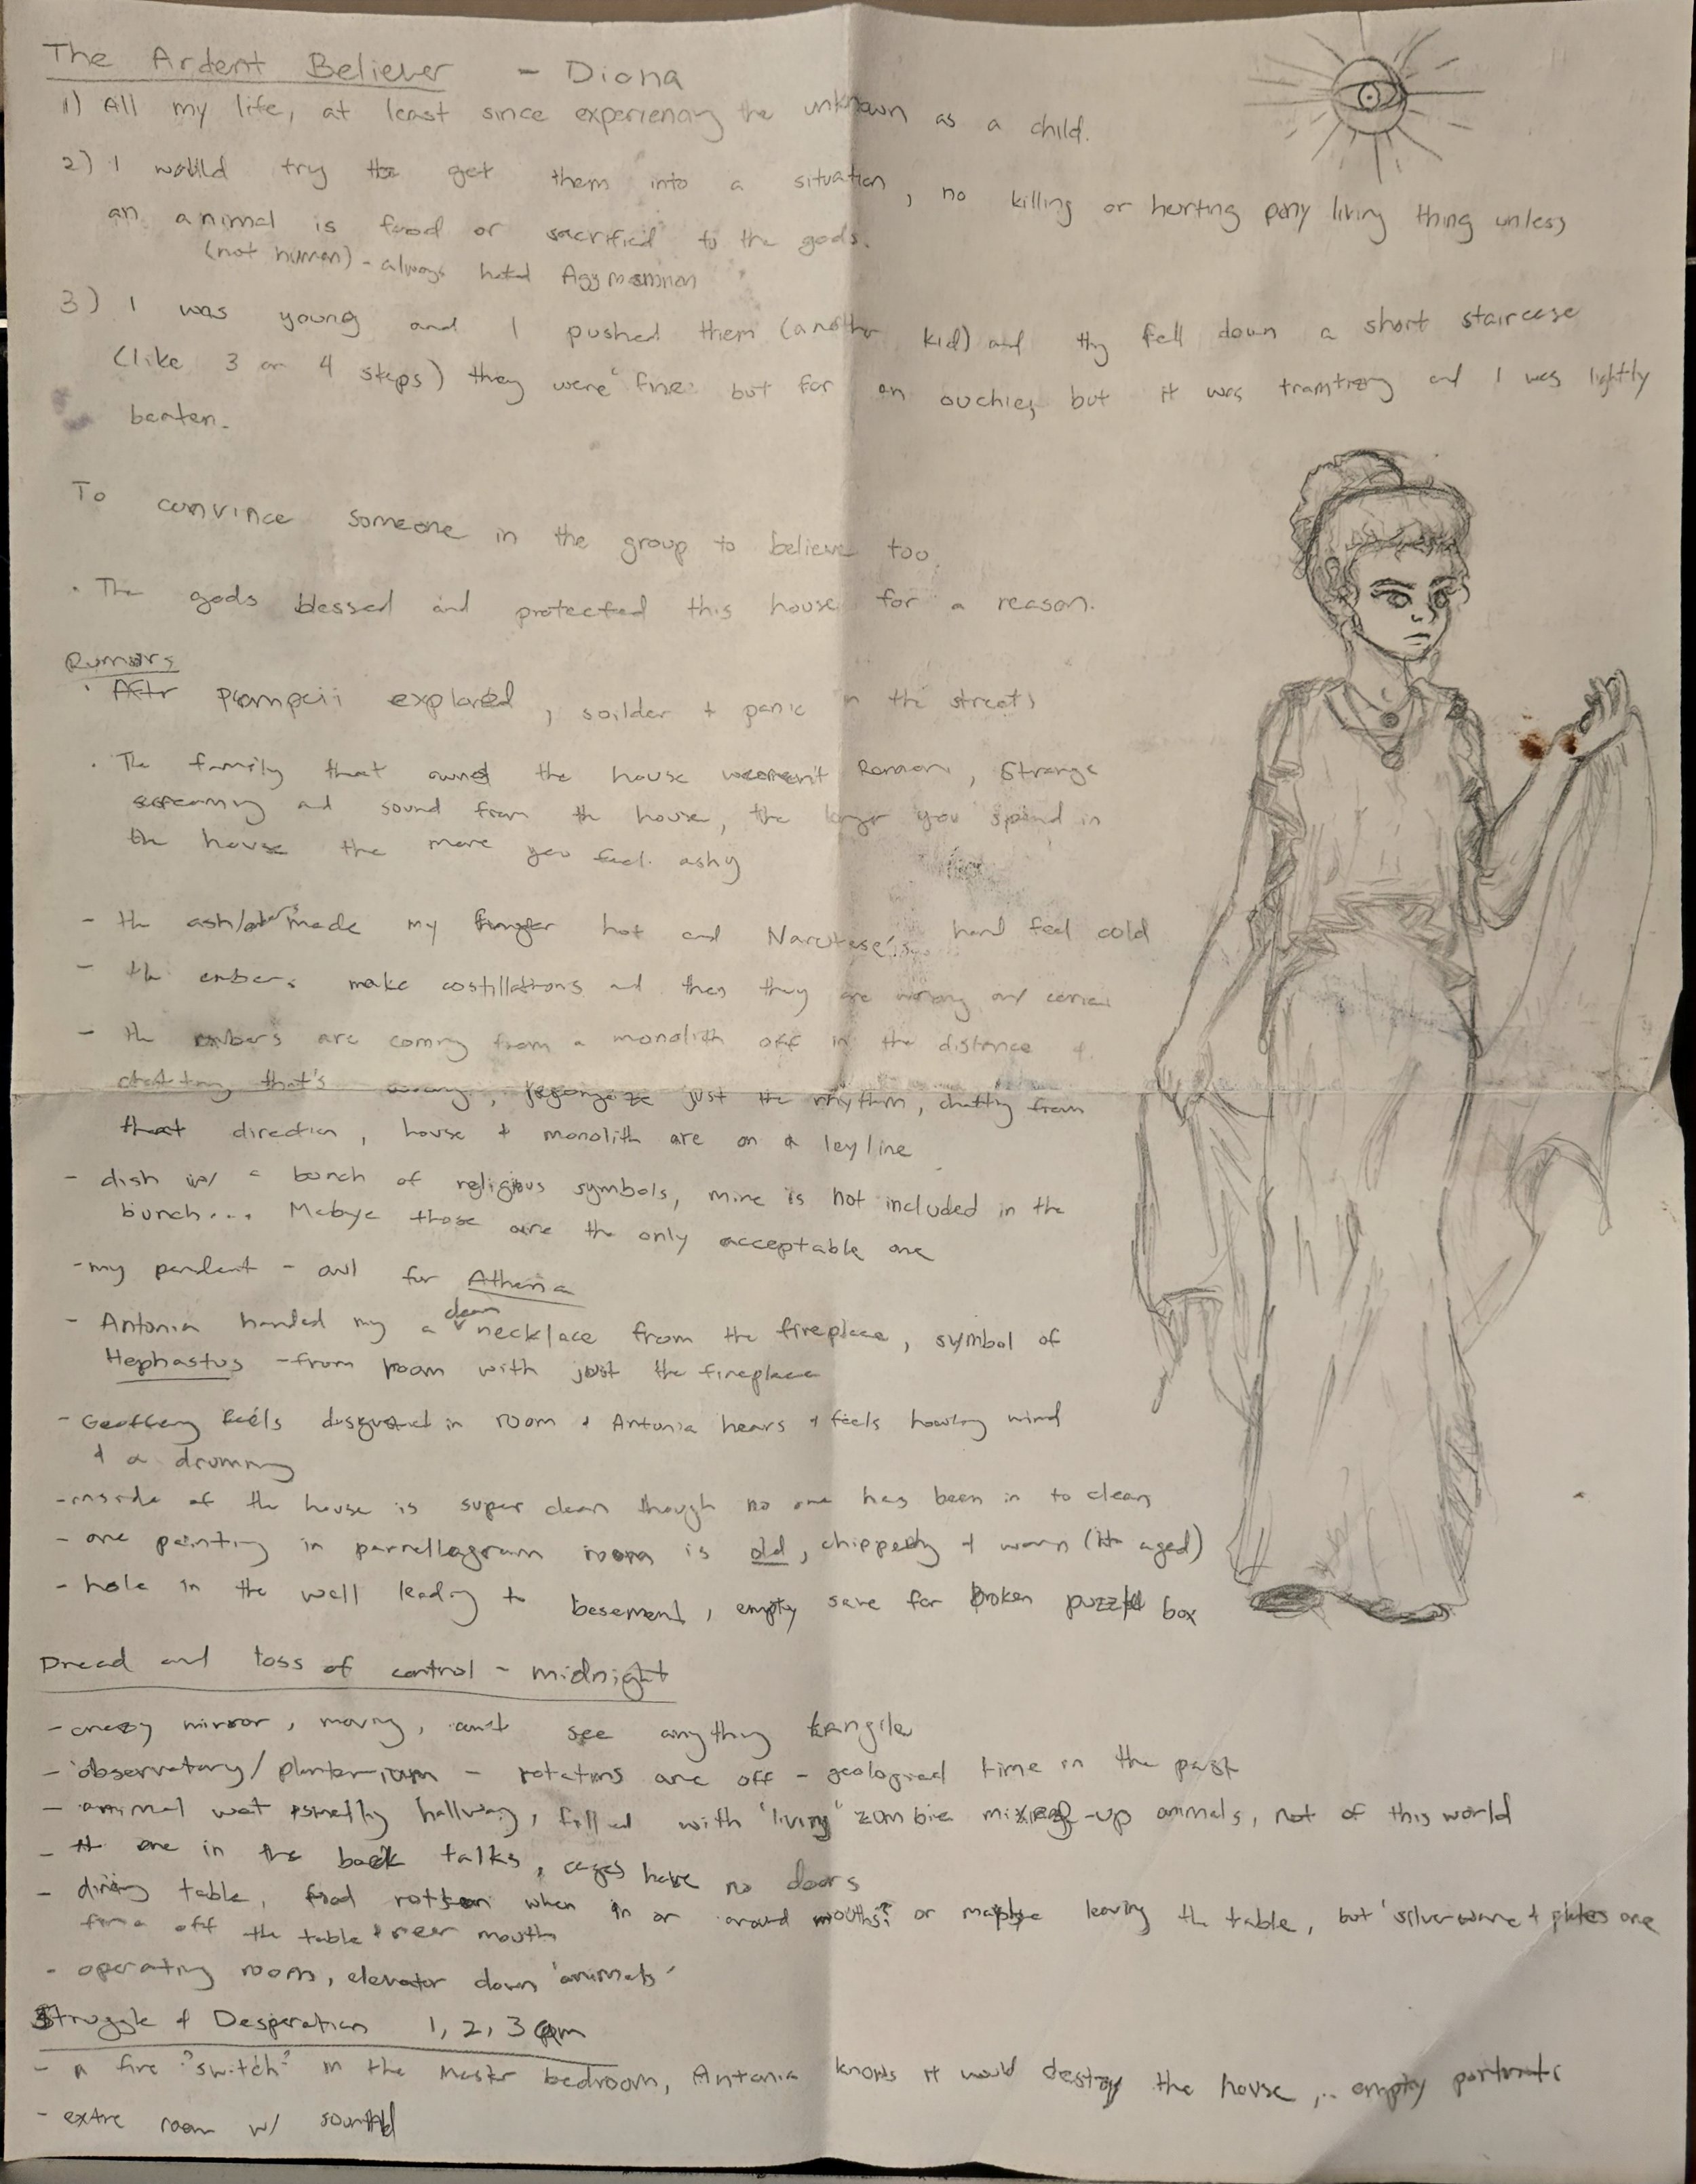 The Ardent Believer - Diona
1) All my life, at least since experiencing the unknown as a child.
2) I would try to get them into a situation, no killing or hurting any living thing unless
an animal is food or sacrificed to the gods.
(not human) - always hated Aggmemnon
3) I was young and I pushed them (another kid) and thy fell down a short staircase
(like 3 or 4 steps) they were fine but for an ouchies but it was and I was lightly
beaten.
To convince someone in the group to believe too.
· The gods blessed and protected this house for a reason.
Rumors
· Aftr Pompeii explored, soilder + panic in the streets
· The family that owned the house weren't Roman, Strange
screaming and sound from th house, the longer you spend in
the house the more you feel ashy
- the ash/ made my finger hot and hand feel cold
- th embers make costillations and then they are wrong and
- th embers are coming from a monolith off in the distance +
chatting that's wrong, just the rhythm, chatting from
that direction, house + monolith are on a leyline
- dish w/ a bunch of religious symbols, mine is not included in the
bunch... Mabye those are the only acceptable one
- my pendent - owl for Athena
- Antonia handed my a clean necklace from the fireplace, symbol of
Hephastus - from room with just the fireplace
- feels in room + Antonia hears + feels howling wind
+ a drumming
- inside of the house is super clean though no one has been in to clean
- one painting in parrellagram room is old, chippedy + worn ( aged)
- hole in the wall leading to basement, empty save for broken puzzle box
Dread and loss of control - midnight
- crazy mirror, moving, can't see anything tangile
- observatory/ - rotations are off - geological time in the past
- animal wet smelly hallway, filled with 'living' zombie mixed-up animals, not of this world
- one in the back talks, cages have no doors
- dining table, food rotten when in or around mouths? or maybe leaving the table, but silverware + plates are
fine off the table + near mouth
- operating room, elevator down 'animals'
Struggle & Desperation 1, 2, 3
- A fire "switch" in the master bedroom, Antonia knows it would destroy the house, .. empty portraits
- extre room w/ sound